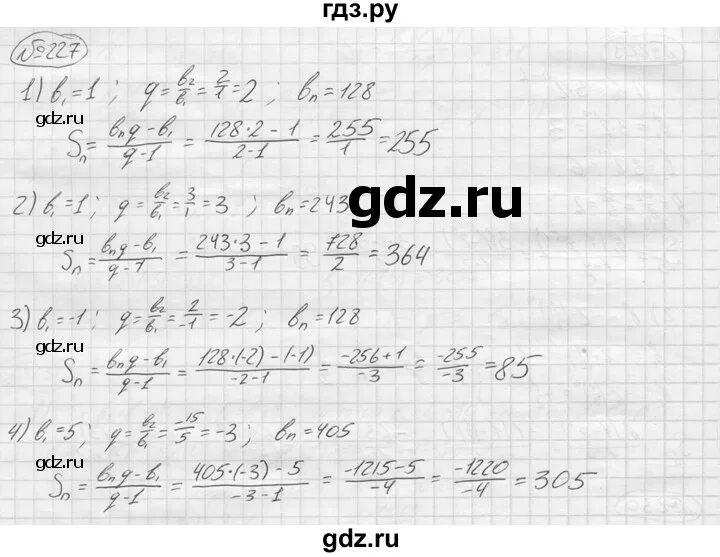 гдз.ру
№227
1) b₁=1 ; q = b₂/b₁ = 2/1 = 2 ; bₙ = 128
gdz.ru
Sₙ = (bₙq - b₁)/(q - 1) = (128·2 - 1)/(2 - 1) = 255/1 = 255
gdz.ru
2) b₁=1 ; q = b₂/b₁ = 3/1 = 3 ; bₙ = 243
gdz.ru
gdz.ru
Sₙ = (bₙq - b₁)/(q - 1) = (243·3 - 1)/(3 - 1) = 728/2 = 364
3) b₁=-1 ; q = b₂/b₁ = 2/-1 = -2 ; bₙ = 128
gdz.ru
Sₙ = (bₙq - b₁)/(q - 1) = (128·(-2) - (-1))/(-2 - 1) = (-256+1)/-3 = -255/-3 = 85
4) b₁=5 ; q = b₂/b₁ = -15/5 = -3 ; bₙ = 405
gdz.ru
Sₙ = (bₙq - b₁)/(q - 1) = (405·(-3) - 5)/(-3 - 1) = (-1215-5)/-4 = -1220/-4 = 305
gdz.ru